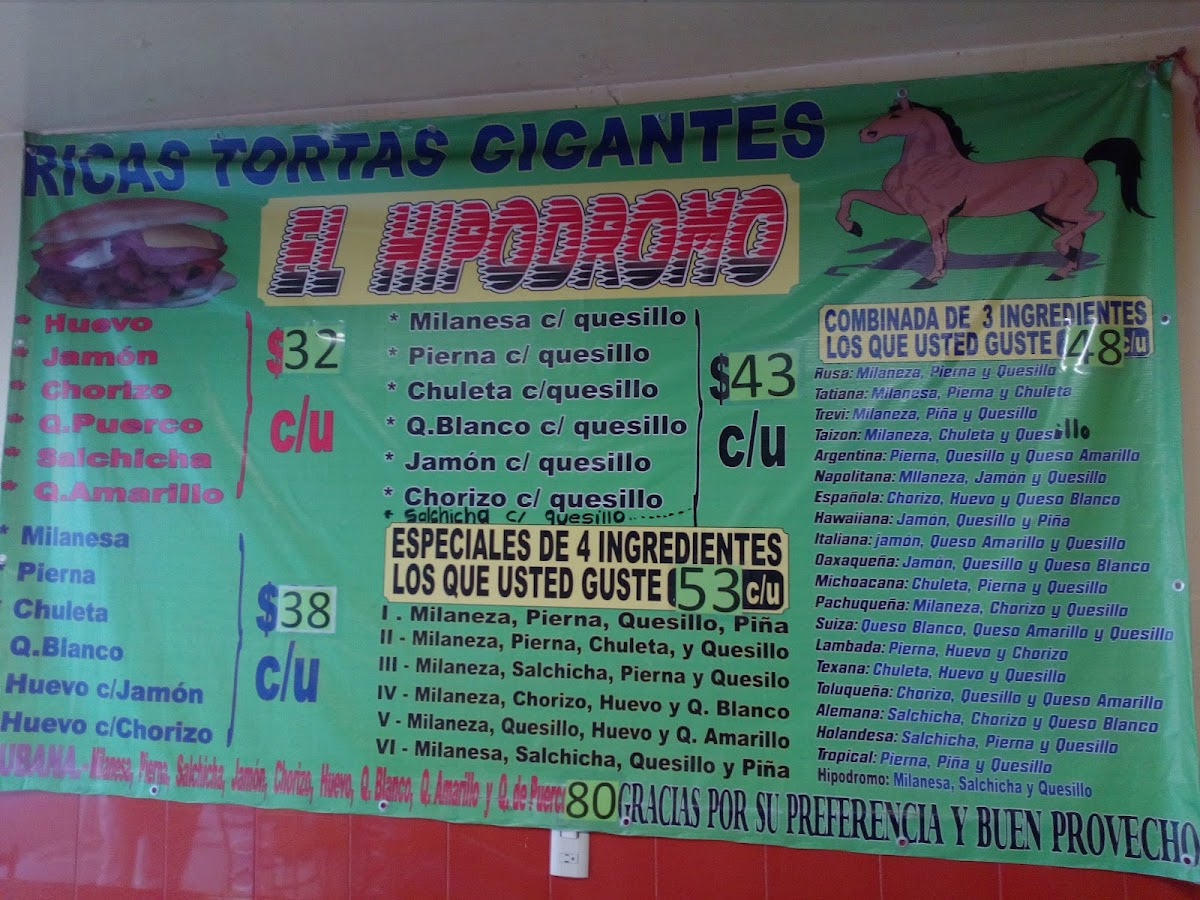 RICAS TORTAS GIGANTES
EL HIPODROMO
* Huevo
* Jamón
* Chorizo
* Q.Puerco
* Salchicha
* Q.Amarillo
$32
c/u
* Milanesa
* Pierna
* Chuleta
Q.Blanco
Huevo c/Jamón
Huevo c/Chorizo
$38
c/u
* Milanesa c/ quesillo
* Pierna c/ quesillo
* Chuleta c/quesillo
* Q.Blanco c/ quesillo
* Jamón c/ quesillo
* Chorizo c/ quesillo
* Salchicha c/ quesillo
$43
c/u
ESPECIALES DE 4 INGREDIENTES
LOS QUE USTED GUSTE 53 c/u
I . Milaneza, Pierna, Quesillo, Piña
II - Milaneza, Pierna, Chuleta, y Quesillo
III - Milaneza, Salchicha, Pierna y Quesilo
IV - Milaneza, Chorizo, Huevo y Q. Blanco
V - Milaneza, Quesillo, Huevo y Q. Amarillo
VI - Milanesa, Salchicha, Quesillo y Piña
COMBINADA DE 3 INGREDIENTES
LOS QUE USTED GUSTE 48 c/u
Rusa: Milaneza, Pierna y Quesillo
Tatiana: Milanesa, Pierna y Chuleta
Trevi: Milaneza, Piña y Quesillo
Taizon: Milaneza, Chuleta y Quesillo
Argentina: Pierna, Quesillo y Queso Amarillo
Napolitana: MIlaneza, Jamón y Quesillo
Española: Chorizo, Huevo y Queso Blanco
Hawaiiana: Jamón, Quesillo y Piña
Italiana: jamón, Queso Amarillo y Quesillo
Oaxaqueña: Jamón, Quesillo y Queso Blanco
Michoacana: Chuleta, Pierna y Quesillo
Pachuqueña: Milaneza, Chorizo y Quesillo
Suiza: Queso Blanco, Queso Amarillo y Quesillo
Lambada: Pierna, Huevo y Chorizo
Texana: Chuleta, Huevo y Quesillo
Toluqueña: Chorizo, Quesillo y Queso Amarillo
Alemana: Salchicha, Chorizo y Queso Blanco
Holandesa: Salchicha, Pierna y Quesillo
Tropical: Pierna, Piña y Quesillo
Hipodromo: Milanesa, Salchicha y Quesillo
UBANA.- Milanesa, Pierna, Salchicha, Jamón, Chorizo, Huevo, Q. Blanco, Q. Amarillo y Q. de Puerco 80
GRACIAS POR SU PREFERENCIA Y BUEN PROVECHO